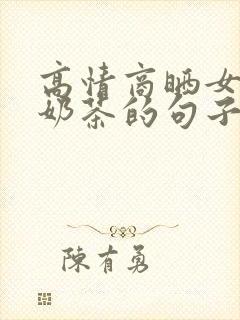 高情商晒女
奶茶的句子
陳有勇